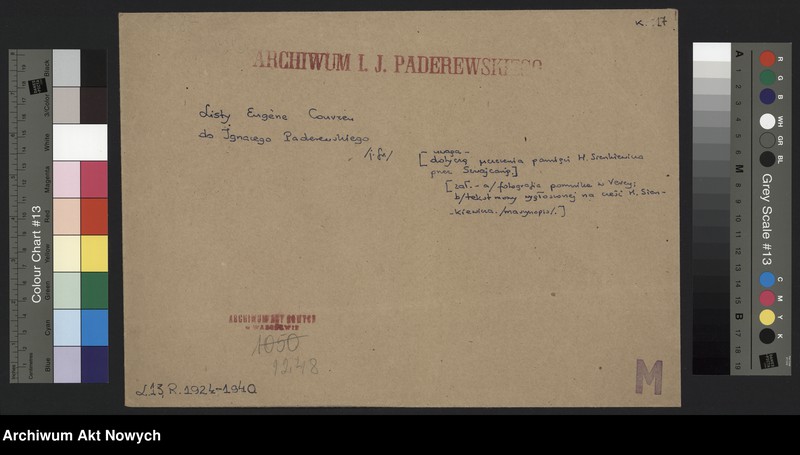 k. 17
ARCHIWUM I. J. PADEREWSKIEGO
Listy Eugène Couvreu
do Ignacego Paderewskiego
/j. fr/
[uwaga –
dotyczą uczczenia pamięci H. Sienkiewicza
przez Szwajcarię]
[zał. – a/ fotografia pomnika w Vevey;
b/ tekst mowy wygłoszonej na cześć H. Sien-
-kiewicza. /maszynopis/.]
ARCHIWUM AKT NOWYCH
W WARSZAWIE
1050
1248
L 13, R. 1924-1940
M
Colour Chart #13
Blue
Cyan
Green
Yellow
Red
Magenta
White
3/Color
Black
Grey Scale #13
A
M
B
R
G
B
WH
GR
BL
C
M
Y
K
Archiwum Akt Nowych